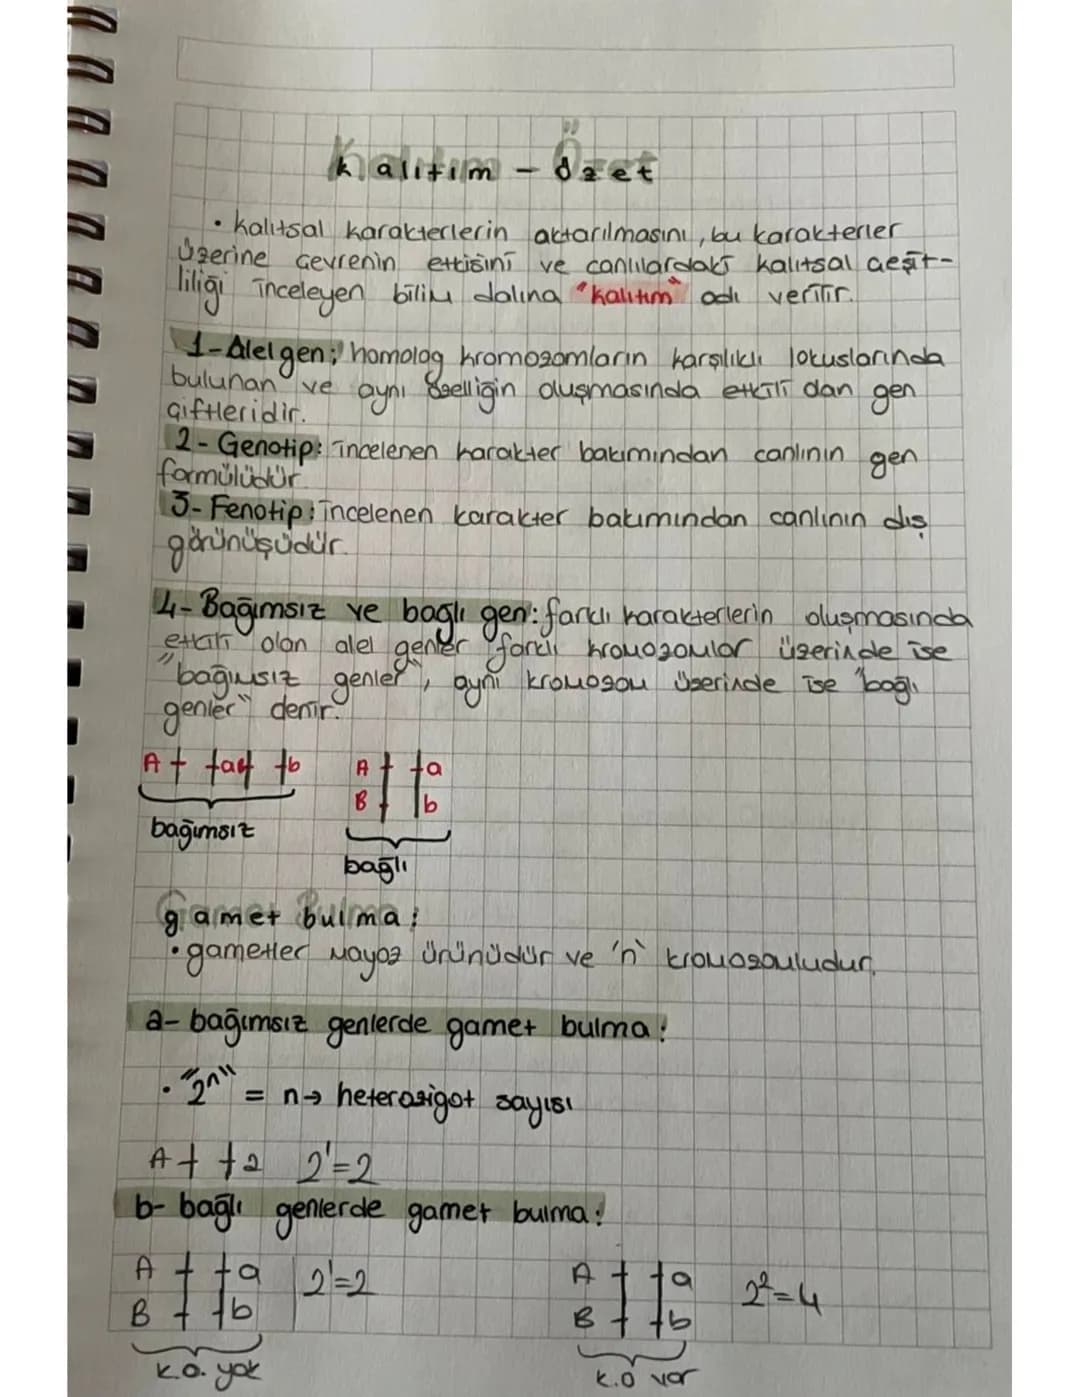 kalıtım - özet
• kalıtsal karakterlerin aktarılmasını, bu karakterler
üzerine çevrenin etkisini ve canlılardaki kalıtsal çeşit-
liliği inceleyen bilim dalına "kalıtım" adı verilir.
1- Alel gen; homolog kromozomların karşılıklı lokuslarında
bulunan ve aynı özelliğin oluşmasında etkili olan gen
çiftleridir.
2- Genotip: incelenen karakter bakımından canlının gen
formülüdür.
3- Fenotip: incelenen karakter bakımından canlının dış
görünüşüdür.
4- Bağımsız ve bağlı gen: farklı karakterlerin oluşmasında
etkili olan alel genler farklı kromozomlar üzerinde ise
"bağımsız genler", aynı kromozom üzerinde ise "bağlı
genler" denir.
A a b A a
B b
bağımsız
bağlı
gamet bulma:
• gametler mayoz ürünüdür ve 'n' kromozomludur.
a- bağımsız genlerde gamet bulma:
• "2ⁿ" = n→ heterozigot sayısı
A a 2¹=2
b- bağlı genlerde gamet bulma:
A a 2¹=2 A a 2²=4
B b B b
k.o. yok k.o var